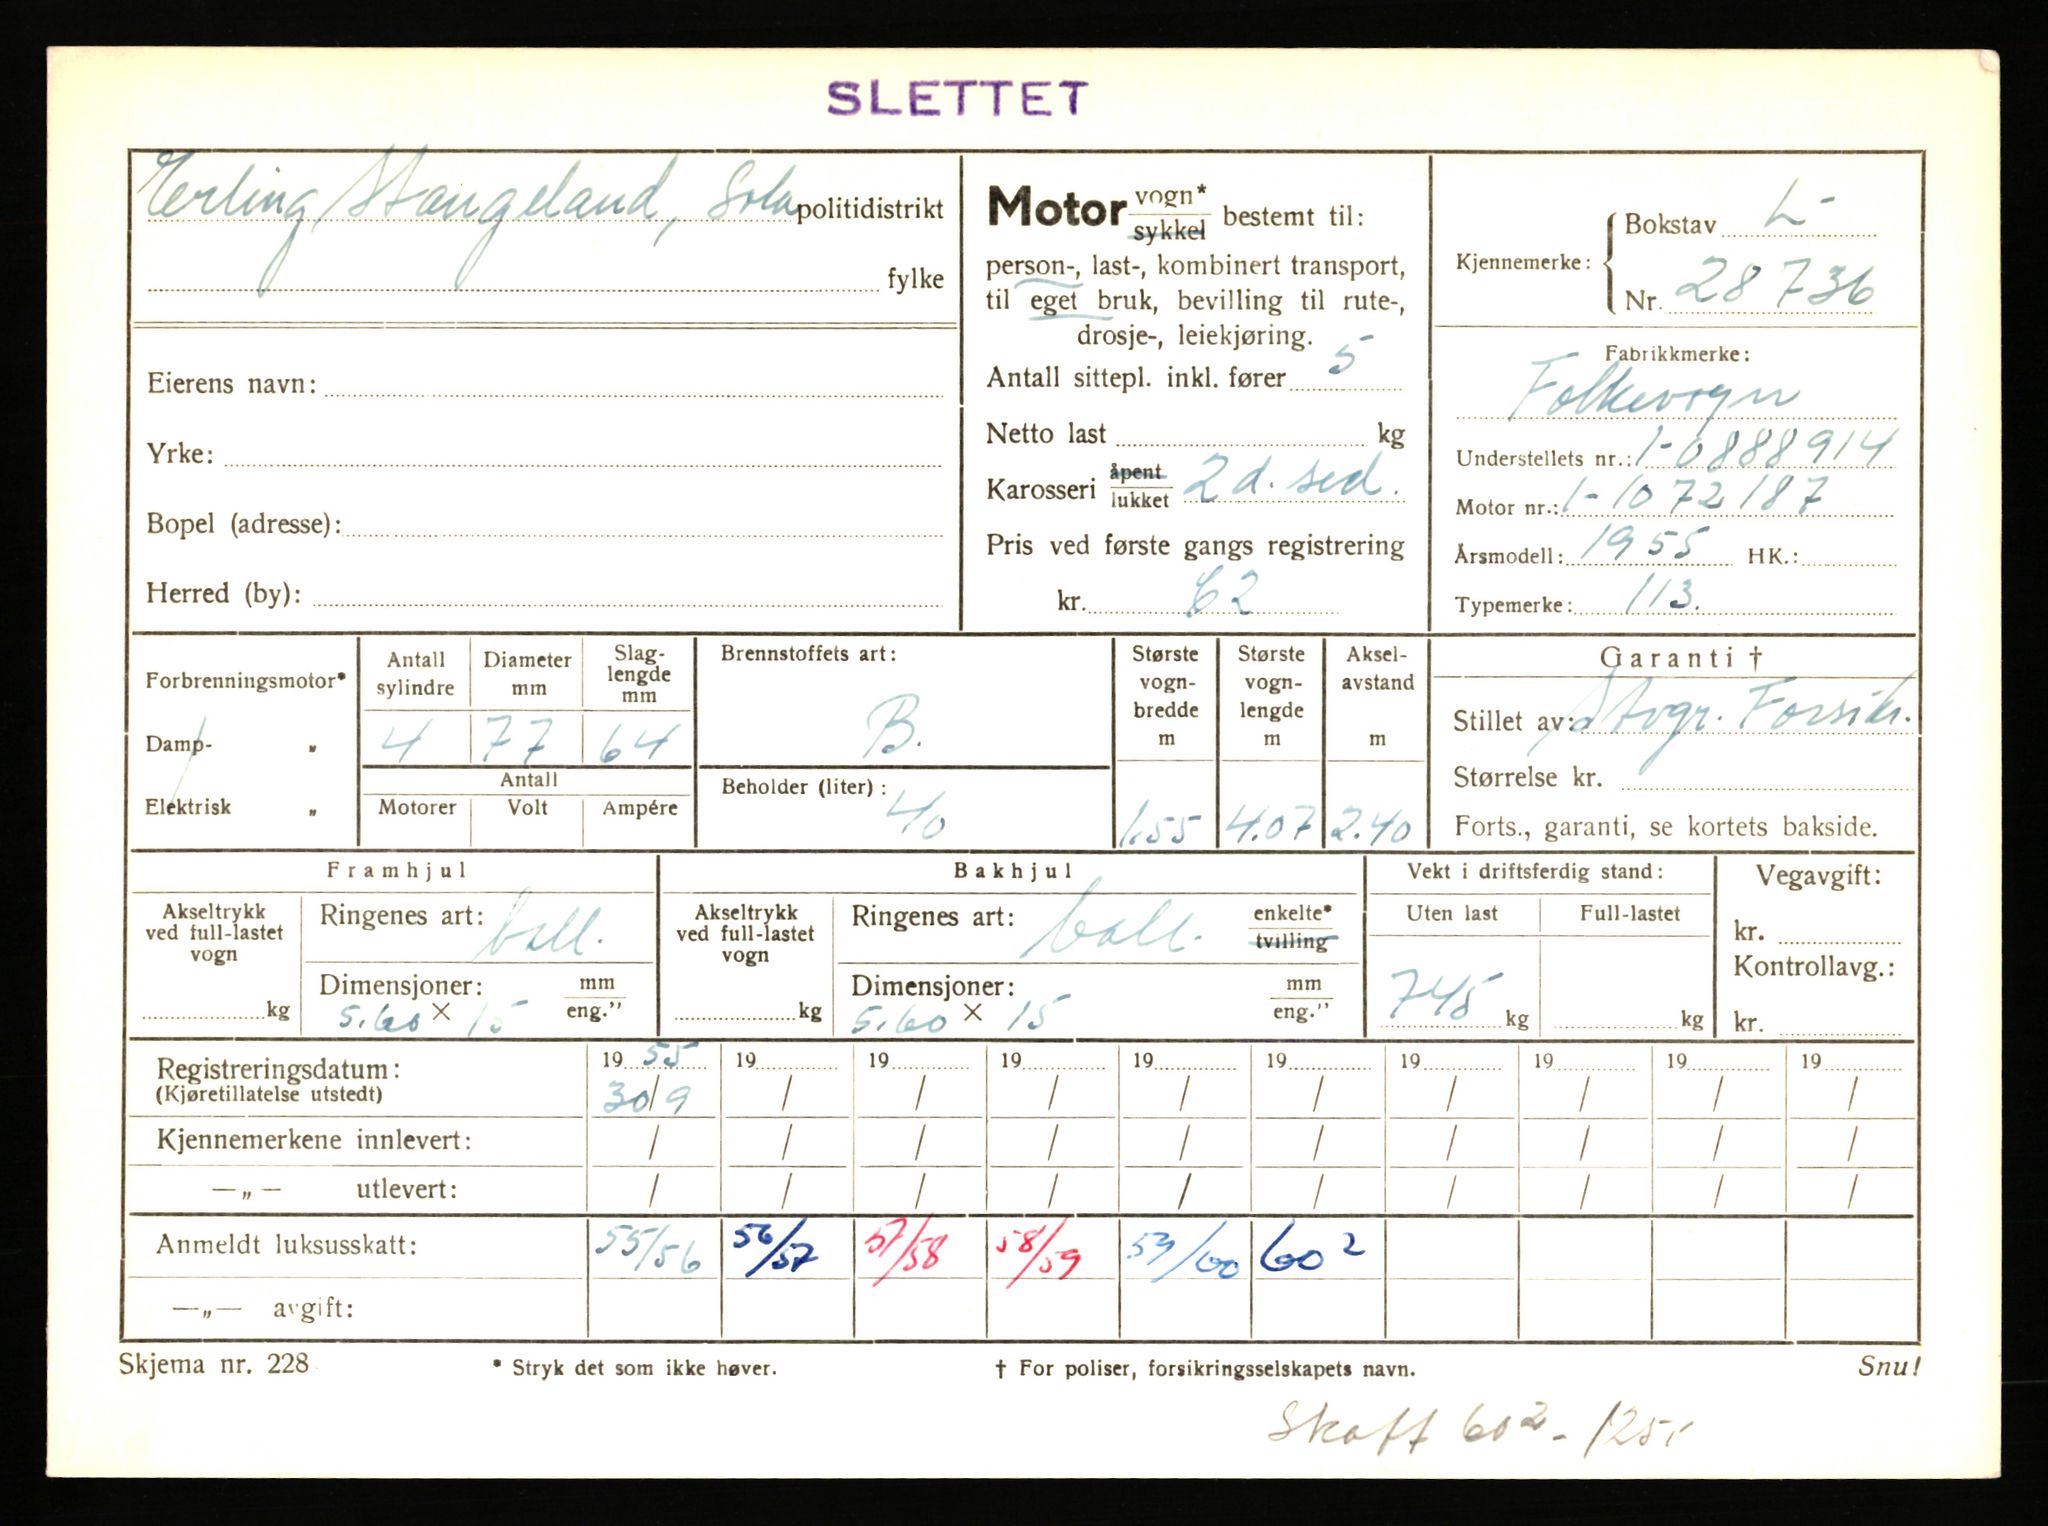 SLETTET
Erling Stangeland, Sola politidistrikt
fylke
Eierens navn:
Yrke:
Bopel (adresse):
Herred (by):
Motor vogn* sykkel bestemt til:
person-, last-, kombinert transport,
til eget bruk, bevilling til rute-,
drosje-, leiekjøring.
Antall sittepl. inkl. fører 5
Netto last kg
Karosseri åpent lukket 2 d. sed.
Pris ved første gangs registrering
kr. 62
Kjennemerke: Bokstav L-
Nr. 28736
Fabrikkmerke:
Folkevogn
Understellets nr.: 1-0888914
Motor nr.: 1-1072187
Årsmodell: 1955 HK.:
Typemerke: 113.
Forbrenningsmotor*
Damp- „
Elektrisk „
Antall sylindre Diameter mm Slag-lengde mm
4 77 64
Antall
Motorer Volt Ampére
Brennstoffets art:
B.
Beholder (liter):
40
Største vogn-bredde m Største vogn-lengde m Aksel-avstand m
1.55 4.07 2.40
Garanti †
Stillet av: Stvgr. Forsikr.
Størrelse kr.
Forts., garanti, se kortets bakside.
Framhjul
Akseltrykk ved full-lastet vogn
kg
Ringenes art: ball.
Dimensjoner: mm
5.60 × 15 eng.”
Bakhjul
Akseltrykk ved full-lastet vogn
kg
Ringenes art: ball. enkelte* tvilling
Dimensjoner: mm
5.60 × 15 eng.”
Vekt i driftsferdig stand:
Uten last Full-lastet
745 kg kg
Vegavgift:
kr.
Kontrollavg.:
kr.
Registreringsdatum: 19 55 19 19 19 19 19 19 19 19 19
(Kjøretillatelse utstedt) 30/9 / / / / / / / / /
Kjennemerkene innlevert: / / / / / / / / / /
—„— utlevert: / / / / / / / / / /
Anmeldt luksusskatt: 55/56 56/57 57/58 58/59 59/60 60²
—„— avgift:
Skjema nr. 228 * Stryk det som ikke høver. † For poliser, forsikringsselskapets navn. Snu!
Skatt 60² - 125,